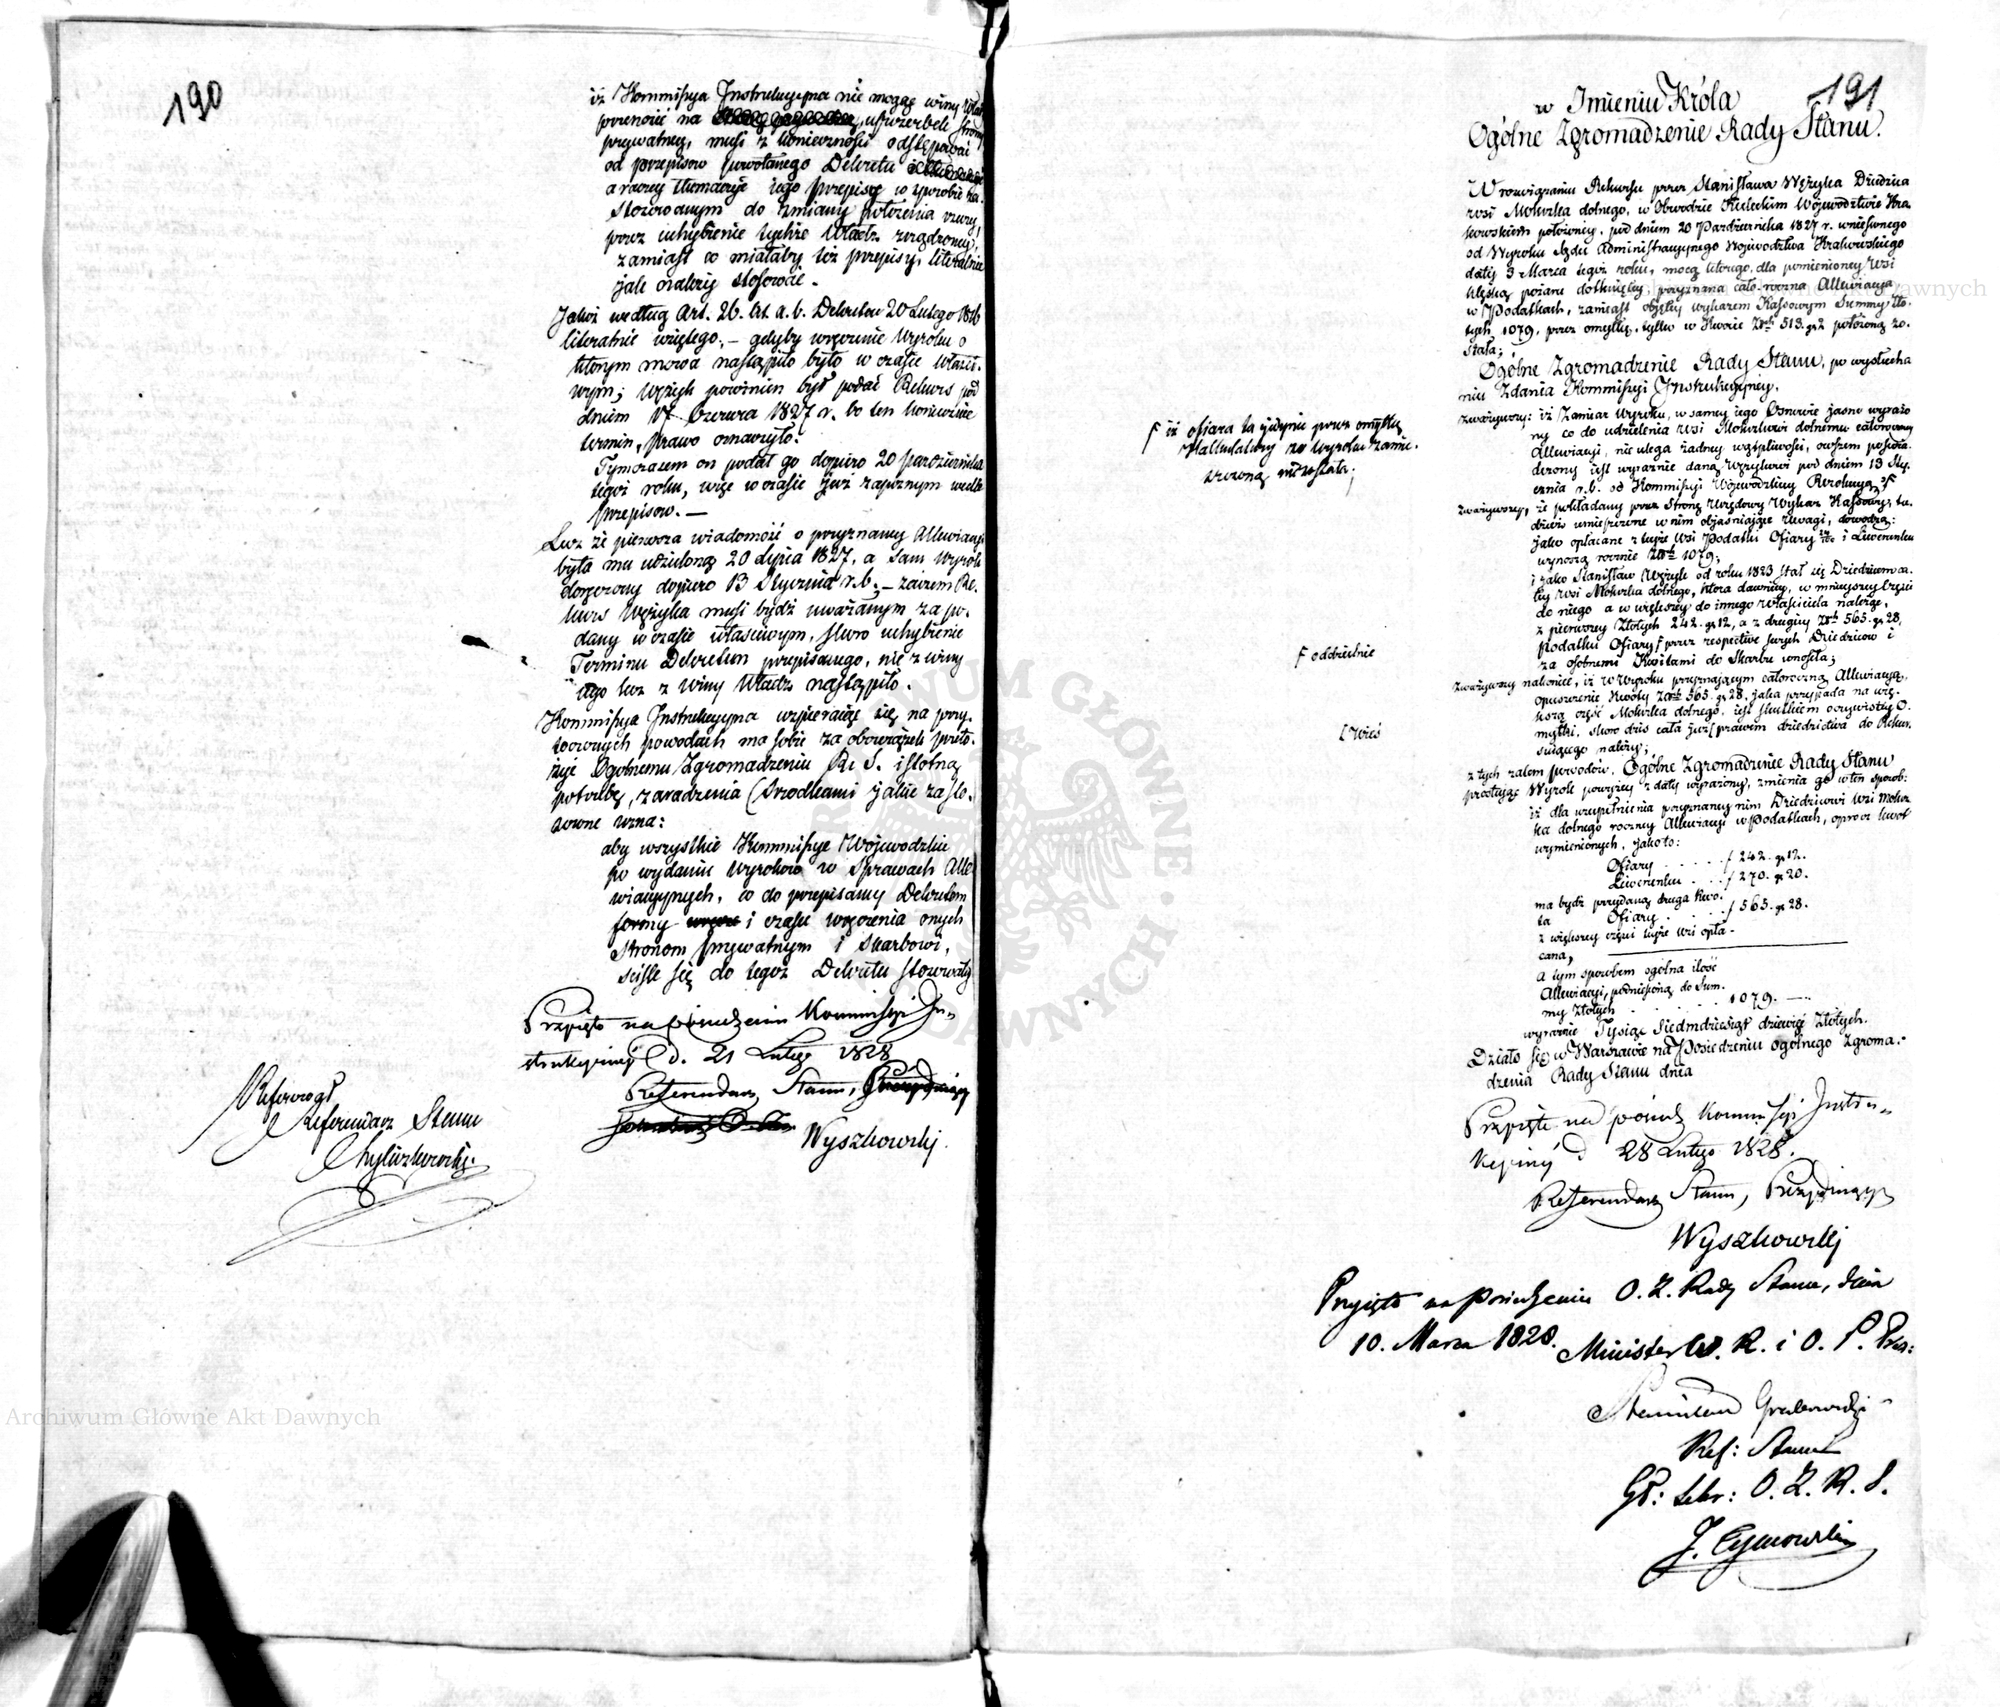 190
iż Kommissya Instrukcyjna nie mogąc winy Władz
przenosić na uszczerbek strony
prywatney, musi z konieczności odstępować
od przepisow powołanego Dekretu
a raczey tłumaczyć iego przepisy w sposobie za-
stosowanym do zmiany położenia rzeczy,
przez uchybienie tychże Władz zrządzoney,
zamiast co miałaby też przepisy, literalnie
jak należy stosować.
Jakoż według Art. 26. lit. a. b. Dekretu 20 Lutego 1816
literalnie wziętego, – gdyby wręczenie Wyroku o
którym mowa nastąpiło było w czasie właści-
wym; Wężyk powinien był podać Rekurs pod
dniem 17 Czerwca 1827 r. bo ten koniecznie
termin, prawo oznaczyło.
Tymczasem on podał go dopiero 20 Października
tegoż roku, więc w czasie już zapóźnym wedle
przepisow. –
Lecz że pierwsza wiadomość o przyznaney Allewiacyi
była mu udzieloną 20 Lipca 1827, a sam Wyrok
doręczony dopiero 13 Stycznia r. b. – zatem Re-
kurs Wężyka musi bydź uważanym za po-
dany w czasie właściwym, skoro uchybienie
Terminu Dekretem przepisanego, nie z winy
iego lecz z winy Władz nastąpiło.
Kommissya Instrukcyjna wspieraiąc się na przy-
toczonych powodach ma sobie za obowiązek przeło-
żyć Ogólnemu Zgromadzeniu R. S. istotną
potrzebę, zaradzenia środkami jakie za sto-
sowne uzna:
aby wszystkie Kommissye Wojewodzkie
po wydaniu Wyrokow w Sprawach Alle-
wiacyinych, co do przepisaney Dekretem
formy i czasu wręczenia onych
Stronom prywatnym i Skarbowi,
ściśle się do tegoż Dekretu stosowały
Przyięto na posiedzeniu Kommissyi In-
strukcyiney d. 21 Lutego 1828
Referendarz Stanu,
Wyszkowski.
Referował
Referendarz Stanu
191
w Imieniu Króla
Ogólne Zgromadzenie Rady Stanu.
W rozwiązaniu Rekursu przez Stanisława Wężyka Dziedzica
wsi Mokrska dolnego, w Obwodzie Kieleckim Województwie Kra-
kowskiem położoney, pod dniem 20 Października 1827 r. wniesionego
od Wyroku Sądu Administracyjnego Województwa Krakowskiego
daty 3 Marca tegoż roku, mocą którego, dla pomienioney wsi
klęską pożaru dotkniętey przyznana cało-roczna Allewiacya
w Podatkach, zamiast objętey wykazem Kassowym Summy Zło-
tych 1079, przez omyłkę, tylko w kwocie Złot 513. gr 2 położoną zo-
stała;
Ogólne Zgromadzenie Rady Stanu, po wysłucha
niu Zdania Kommissyi Instrukcyiney,
zważywszy: iż Zamiar Wyroku, w samey iego Osnowie jasno wyrażo
ny co do udzielenia wsi Mokrskowi dolnemu całoroczney
Allewiacyi, nie ulega żadney wątpliwości, owszem poświa-
dczony iest wyraźnie daną Wężykowi pod dniem 13 Sty-
cznia r. b. od Kommissyi Wojewódzkiey Rezolucyą, F
F iż ofiara ta jedynie przez omyłkę
Kalkulatury w wyroku zamie-
szczoną nie została;
zważywszy, że pokładany przez Stronę Urzędowy Wykaz Kassowy, tu-
dzież umieszczone w nim objaśniaiące uwagi, dowodzą:
jako opłacane z tejże wsi Podatki Ofiary i Liwerunku
wynoszą rocznie Złot 1079;
i jako Stanisław Wężyk od roku 1823 stał się Dziedzicem ca-
łey wsi Mokrska dolnego, która dawniey, w mnieyszey Części
do niego a w większey do innego właściciela należąc,
z pierwszey Złotych 242. gr 12, a z drugiey Złot 565. gr 28,
podatku Ofiary F przez respective swych Dziedzicow i
F oddzielnie
za osobnemi Kwitami do Skarbu wnosiła;
zważywszy nakoniec, iż w Wyroku przyznaiącym całoroczną Allewiacyą,
opuszczenie Kwoty Złot 565. gr 28, jaka przypada na wię-
kszą część Mokrska dolnego, iest skutkiem oczywistey O-
myłki, skoro dziś cała już [ prawem dziedzictwa do Rekur-
[ wieś
suiącego należy;
z tych zatem powodów, Ogólne Zgromadzenie Rady Stanu
prostuiąc Wyrok powyżey z daty wyrażony, zmienia go w ten sposob:
iż dla uzupełnienia przyznaney nim Dziedzicowi wsi Mokr-
ska dolnego roczney Allewiacyi w Podatkach, oprocz kwot
wymienionych, jako to:
Ofiary . . . . . f 242. gr 12.
Liwerunku . . . f 270. gr 20.
ma bydź przydaną druga kwo-
ta Ofiary . . . . f 565. gr 28.
z większey części tejże wsi opła-
cana,
a tym sposobem ogólna ilość
Allewiacyi, podniesioną do Sum-
my Złotych . . . . . 1079. –
wyraźnie Tysiąc Siedmdziesiąt dziewięć Złotych.
Działo się w Warszawie na Posiedzeniu ogólnego Zgroma-
dzenia Rady Stanu dnia
Przyięto na posiedz Kommissyi Instru-
kcyiney d. 28 Lutego 1828.
Referendarz Stanu, Prezyduiący
Wyszkowski
Przyięto na posiedzeniu O. Z. Rady Stanu, dnia
10. Marca 1828. Minister W. R. i O. P. Prez:
Stanisław Grabowski
Ref: Stanu
Gł: Sekr: O. Z. R. S.
Archiwum Główne Akt Dawnych
ARCHIWUM GŁÓWNE AKT DAWNYCH